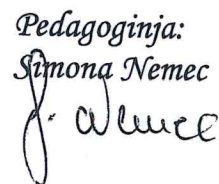 Pedagoginja:
Simona Nemec
S. Nemec